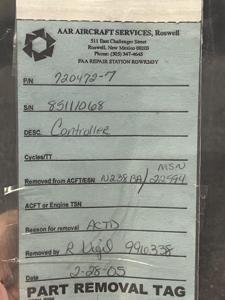 AAR AIRCRAFT SERVICES, Roswell
511 East Challenger Street
Roswell, New Mexico 88203
Phone: (505) 347-4645
FAA REPAIR STATION
P/N 720472-7
S/N 85111068
DESC. Controller
Cycles/TT
MSN
Removed from ACFT/ESN N238BA/22594
ACFT or Engine TSN
Reason for removal ACTD
Removed by R Vigil 9910338
Date 2-28-05
PART REMOVAL TAG